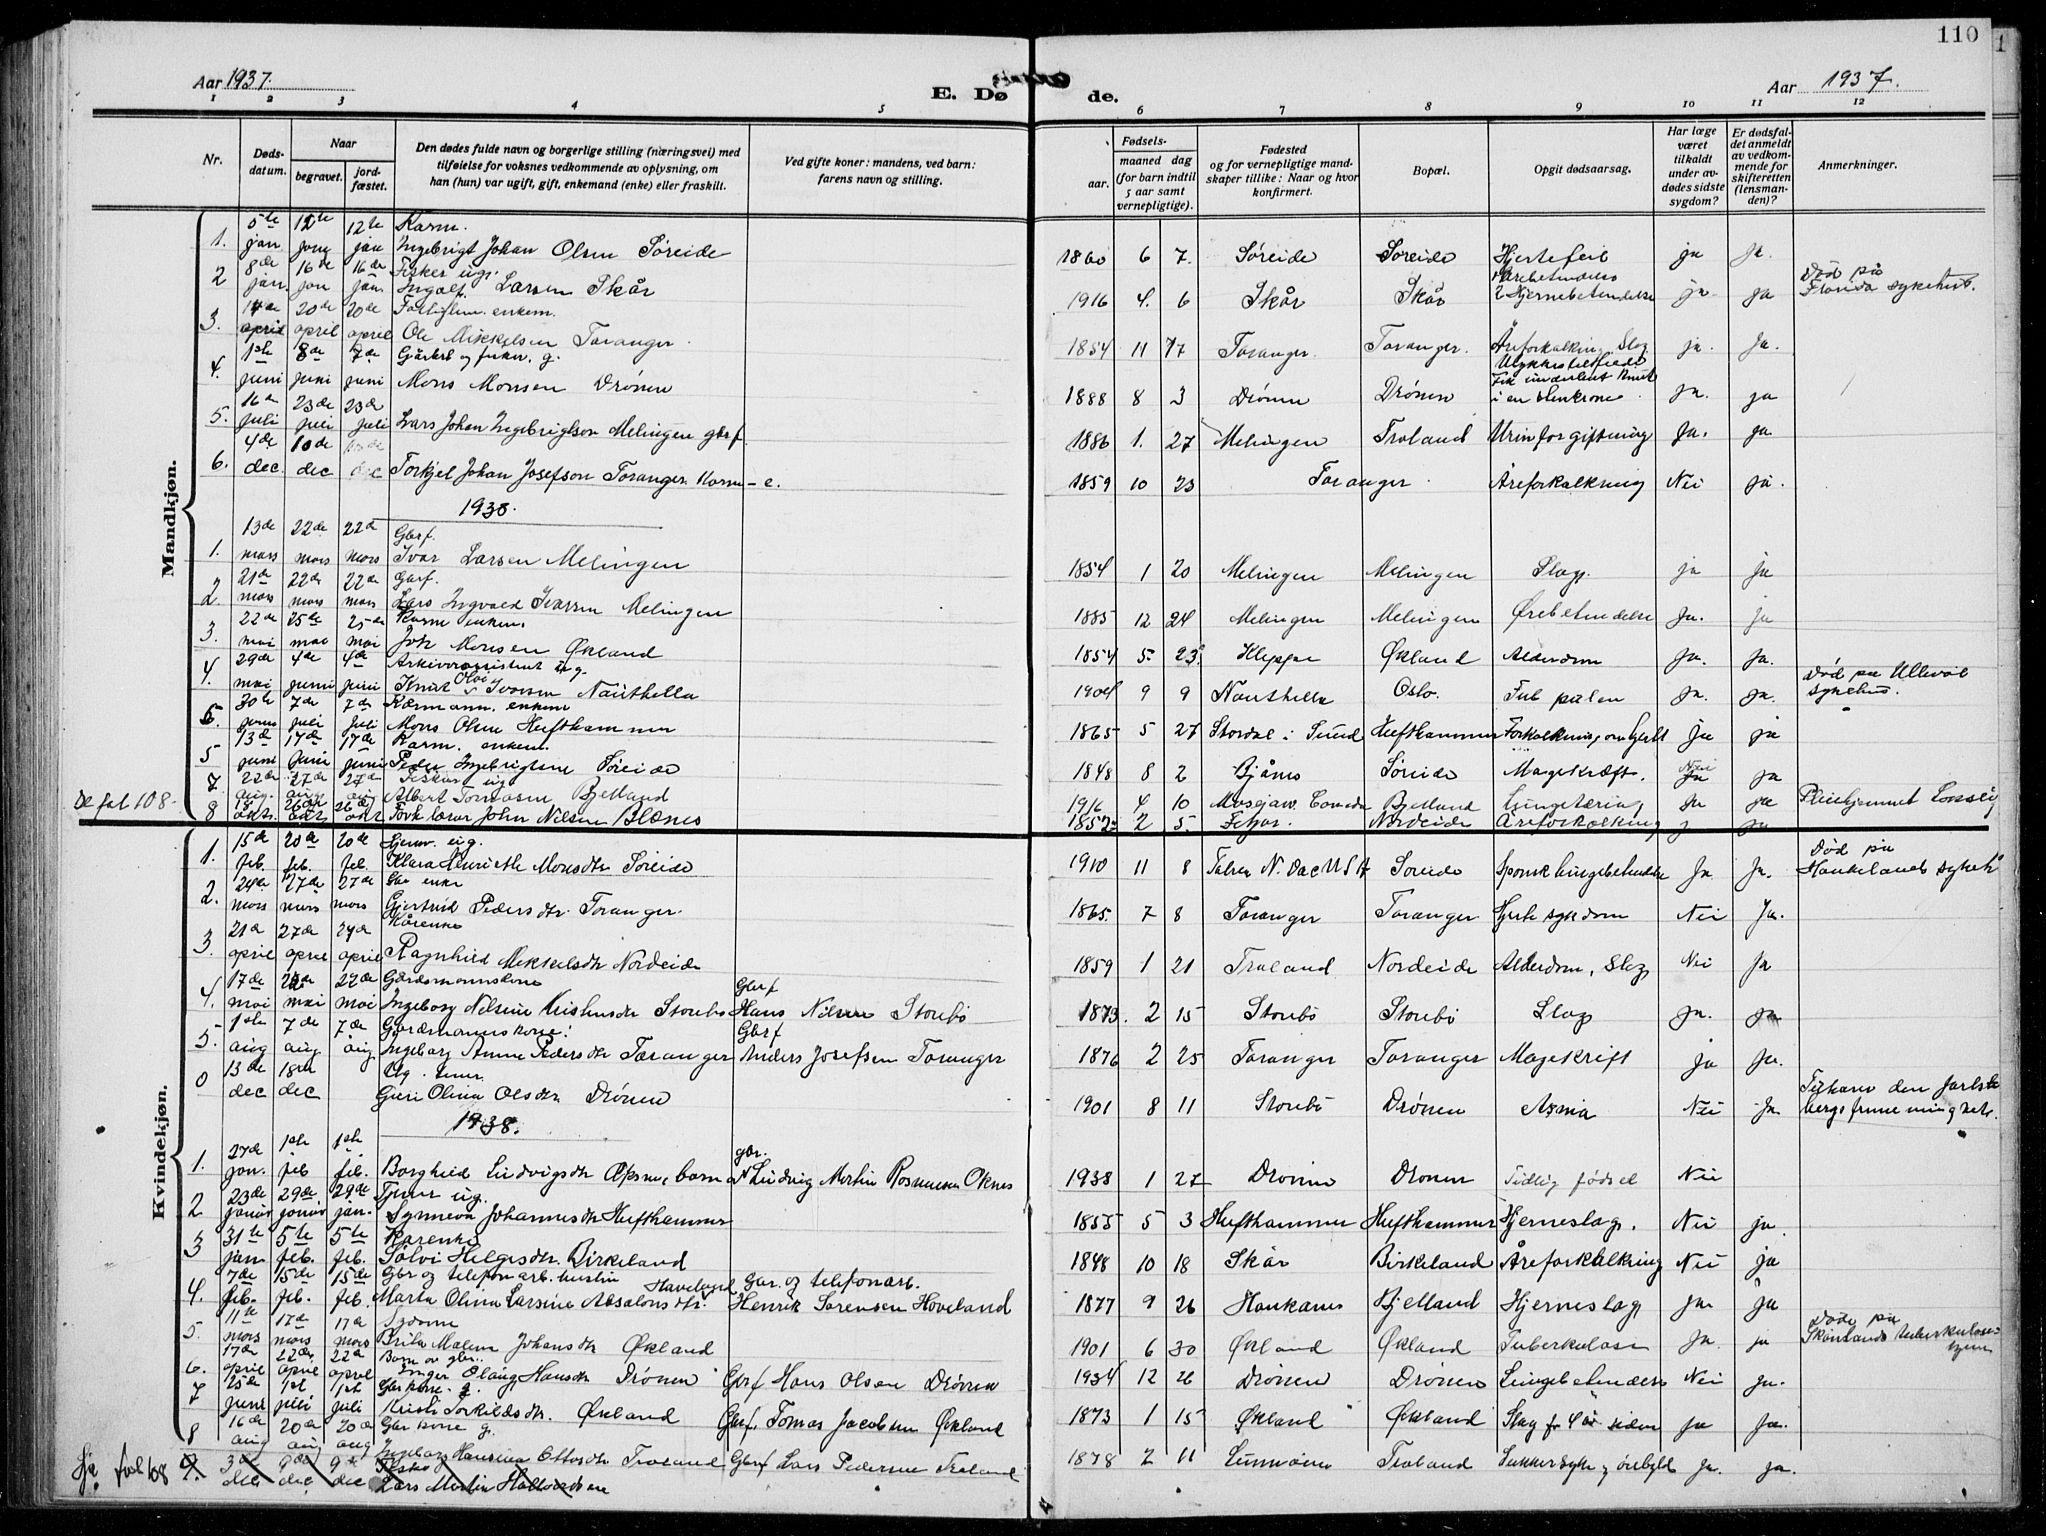 110
Aar 1937.
E. Døde.
Aar 1937.
1 2 3 4 5 6 7 8 9 10 11 12
Nr.
Døds-
datum.
Naar
begravet.
jord-
fæstet.
Den dødes fulde navn og borgerlige stilling (næringsvei) med
tilføielse for voksnes vedkommende av oplysning, om
han (hun) var ugift, gift, enkemand (enke) eller fraskilt.
Ved gifte koner: mandens, ved barn:
farens navn og stilling.
Fødsels-
aar.
maaned dag
(for barn indtil
5 aar samt
vernepligtige).
Fødested
og for vernepligtige mand-
skaper tillike: Naar og hvor
konfirmert.
Bopæl.
Opgit dødsaarsag.
Har læge
været
tilkaldt
under av-
dødes sidste
sygdom?
Er dødsfal-
det anmeldt
av vedkom-
mende for
skifteretten
(lensman-
den)?
Anmerkninger.
Mandkjøn.
5te 12te 12te Karm.
1. jan. jan jan Ingebrigt Johan Olsen Søreide 1860 6 7. Søreide Søreide Hjertefeil ja Ja.
8de 16de 16de Fisker ug.
2 jan. jan jan. Ingolf Larsen Skår 1916 4. 6 Skår Skår & Hjernebetendelse ja ja Død på Florida sykehus.
20de 20de enkem.
3. april april april Ole Mikkelsen Toranger 1854 11 17 Toranger. Toranger. Åreforkalkning Slag ja. Ja.
1ste 8de 7de g.
4. juni juni juni Mons Monsen Drönen 1888 8 3 Drönen Drönen Ja. ja
16de 23de 23de
5. juli juli juli Lars Johan Ingebrigtson Melingen gbrf. 1886 1. 27 Melingen Troland Urinforgiftning Ja. ja
4de 10de
6. dec. dec dec Torkjel Johan Josefson Toranger Karm - e. 1859 10 23 Toranger. Åreforkalkning Nei ja.
1938.
13de 22de 22d Gbrf.
1. mars mars mars Ivar Larsen Melingen 1854 1 20 Melingen Melingen Slag. ja ja
21de 22de 22de Gbrf.
2. mars mars mars Lars Ingvald Ivarsen Melingen 1885 12 24 Melingen Melingen Ørebetendelse Ja. ja
22de 25de 25de Karm enkem.
3. mai mai mai Joh. Monsen Økland 1854 5. 23. Kleppe Økland Alderdom Ja. Ja.
29de 4de 4de Arkivassistent ug.
4. mai juni juni Knut Olai Ivarsen Nauthella 1904 9 9 Nauthella Oslo. ja. ja. Død på Ullevål sykehus.
30te 7de 7de Kårmann. enkem
6. juni juli juli Mons Olsen Hufthammer 1865 5 27 Stordal i Sund Hufthammer Forkalkning om hjertet Ja ja
13de 17de 17de Karm. enkem.
5 juni juni juni Peder Ingebrigtsen Søreide 1848 8 2 Bjånes Søreide Magekræft. Nei ja
22de 27de 27de Fisker ug
7. aug. aug aug Albert Tomassen Bjelland 1916 4 10 Bjelland Lungetæring Ja ja Pleiehjemmet
De fol 108.
18 26de 26de
8 okt. okt okt Forh. lærer John Nilsen Blænes 1852 2 5. Nordeide Åreforkalkning ja
Kvindekjøn.
15de 20de 20de Hjemv. ug.
1. feb. feb. feb. Klara Henriette Monsdtr Søreide 1910 11 8 N. Dac USA Søreide Spansk lungebetendelse Ja Ja. Død på Haukeland sykeh.
24de 27de 27de Gbr enke
2. mars mars mars Gjertrud Pedersdtr. Toranger. 1865. 7 8 Toranger Toranger Hjertesykdom Nei Ja.
21de 27de 27de Kårenke
3. april april april Ragnhild Mikkelsdtr Nordeide 1859 1 21 Troland Nordeide Alderdom, Slag Nei Ja
17de 22de 22de Gårdmannskone Gbrf
4. mai mai mai Ingeborg Nilsine Kristensdtr Storebø Hans Nilsen Storebø 1873. 2 15 Storebø Storebø Slag ja. ja
1ste 7de 7de Gardmannskone! Gbrf
5. aug aug aug Ingeborg Anna Pedersdtr Toranger Anders Josefsen Toranger 1876 2 25 Toranger Toranger Magekreft ja ja.
13de 18de
6 dec dec Guri Olina Olsdtr Drönen 1901 8 11 Storebö Drönen Asma Nei Ja
1938.
27de 1ste 1ste gbr.
1. jan. feb feb. Borghild Ludvigsdtr Opsnes, barn av Ludvig Martin Rasmussen Oknes 1938 1 27 Drönen Drönen Tidlig fødsel Nei
23de 29de 29de Tjener ug.
2 januar januar jan. Synneva Johannesdtr Hufthammer 1855 5 3 Hufthammer Hufthammer Hjerneslag. Nei ja.
31te 5te 5te Karenke
3 jan. feb. feb. Sølvi Helgesdtr. Birkeland 1848 10 18 Skår Birkeland Åreforkalkning Nei ja
7de 15de 15de Gbr og telefonarb. hustru Gbr. og telefonarb.
4. feb. feb. feb. Marta Olina Larsine Absalonsdtr. Haveland Henrik Sørensen Hoveland 1877 9 26 Haukanes Bjelland Hjerneslag ja. ja
11te 17de 17de Sydame
5. mars mars mars Brita Malene Johansdtr Økland 1901 6 30 Økland Økland Tuberkulose Ja. ja Døde på
17de 22de 22de Barn av gbr.
6. april april april Inger Olaug Hansdtr Drönen Gbrf Hans Olsen Drönen 1934 12 26 Drönen Drönen Lungebetendelse Nei ja.
25de 1st 1st Gbr kone. g.
7 juni juli juli Kristi Torkildsdtr. Økland Gbrf. Tomas Jacobsen Økland 1873 1 15 Økland Økland Slag for 4 år siden ja ja.
16de 20de 20de Gbr kone g.
8 aug aug aug Ingeborg Hansina Ottosdtr Troland Gbrf Lars Pedersen Troland 1878 2 11 Troland Sukkersyke ja. ja.
fol 108
9. 3de 9de 9de
dec dec dec Lars Martin Hallvardsen